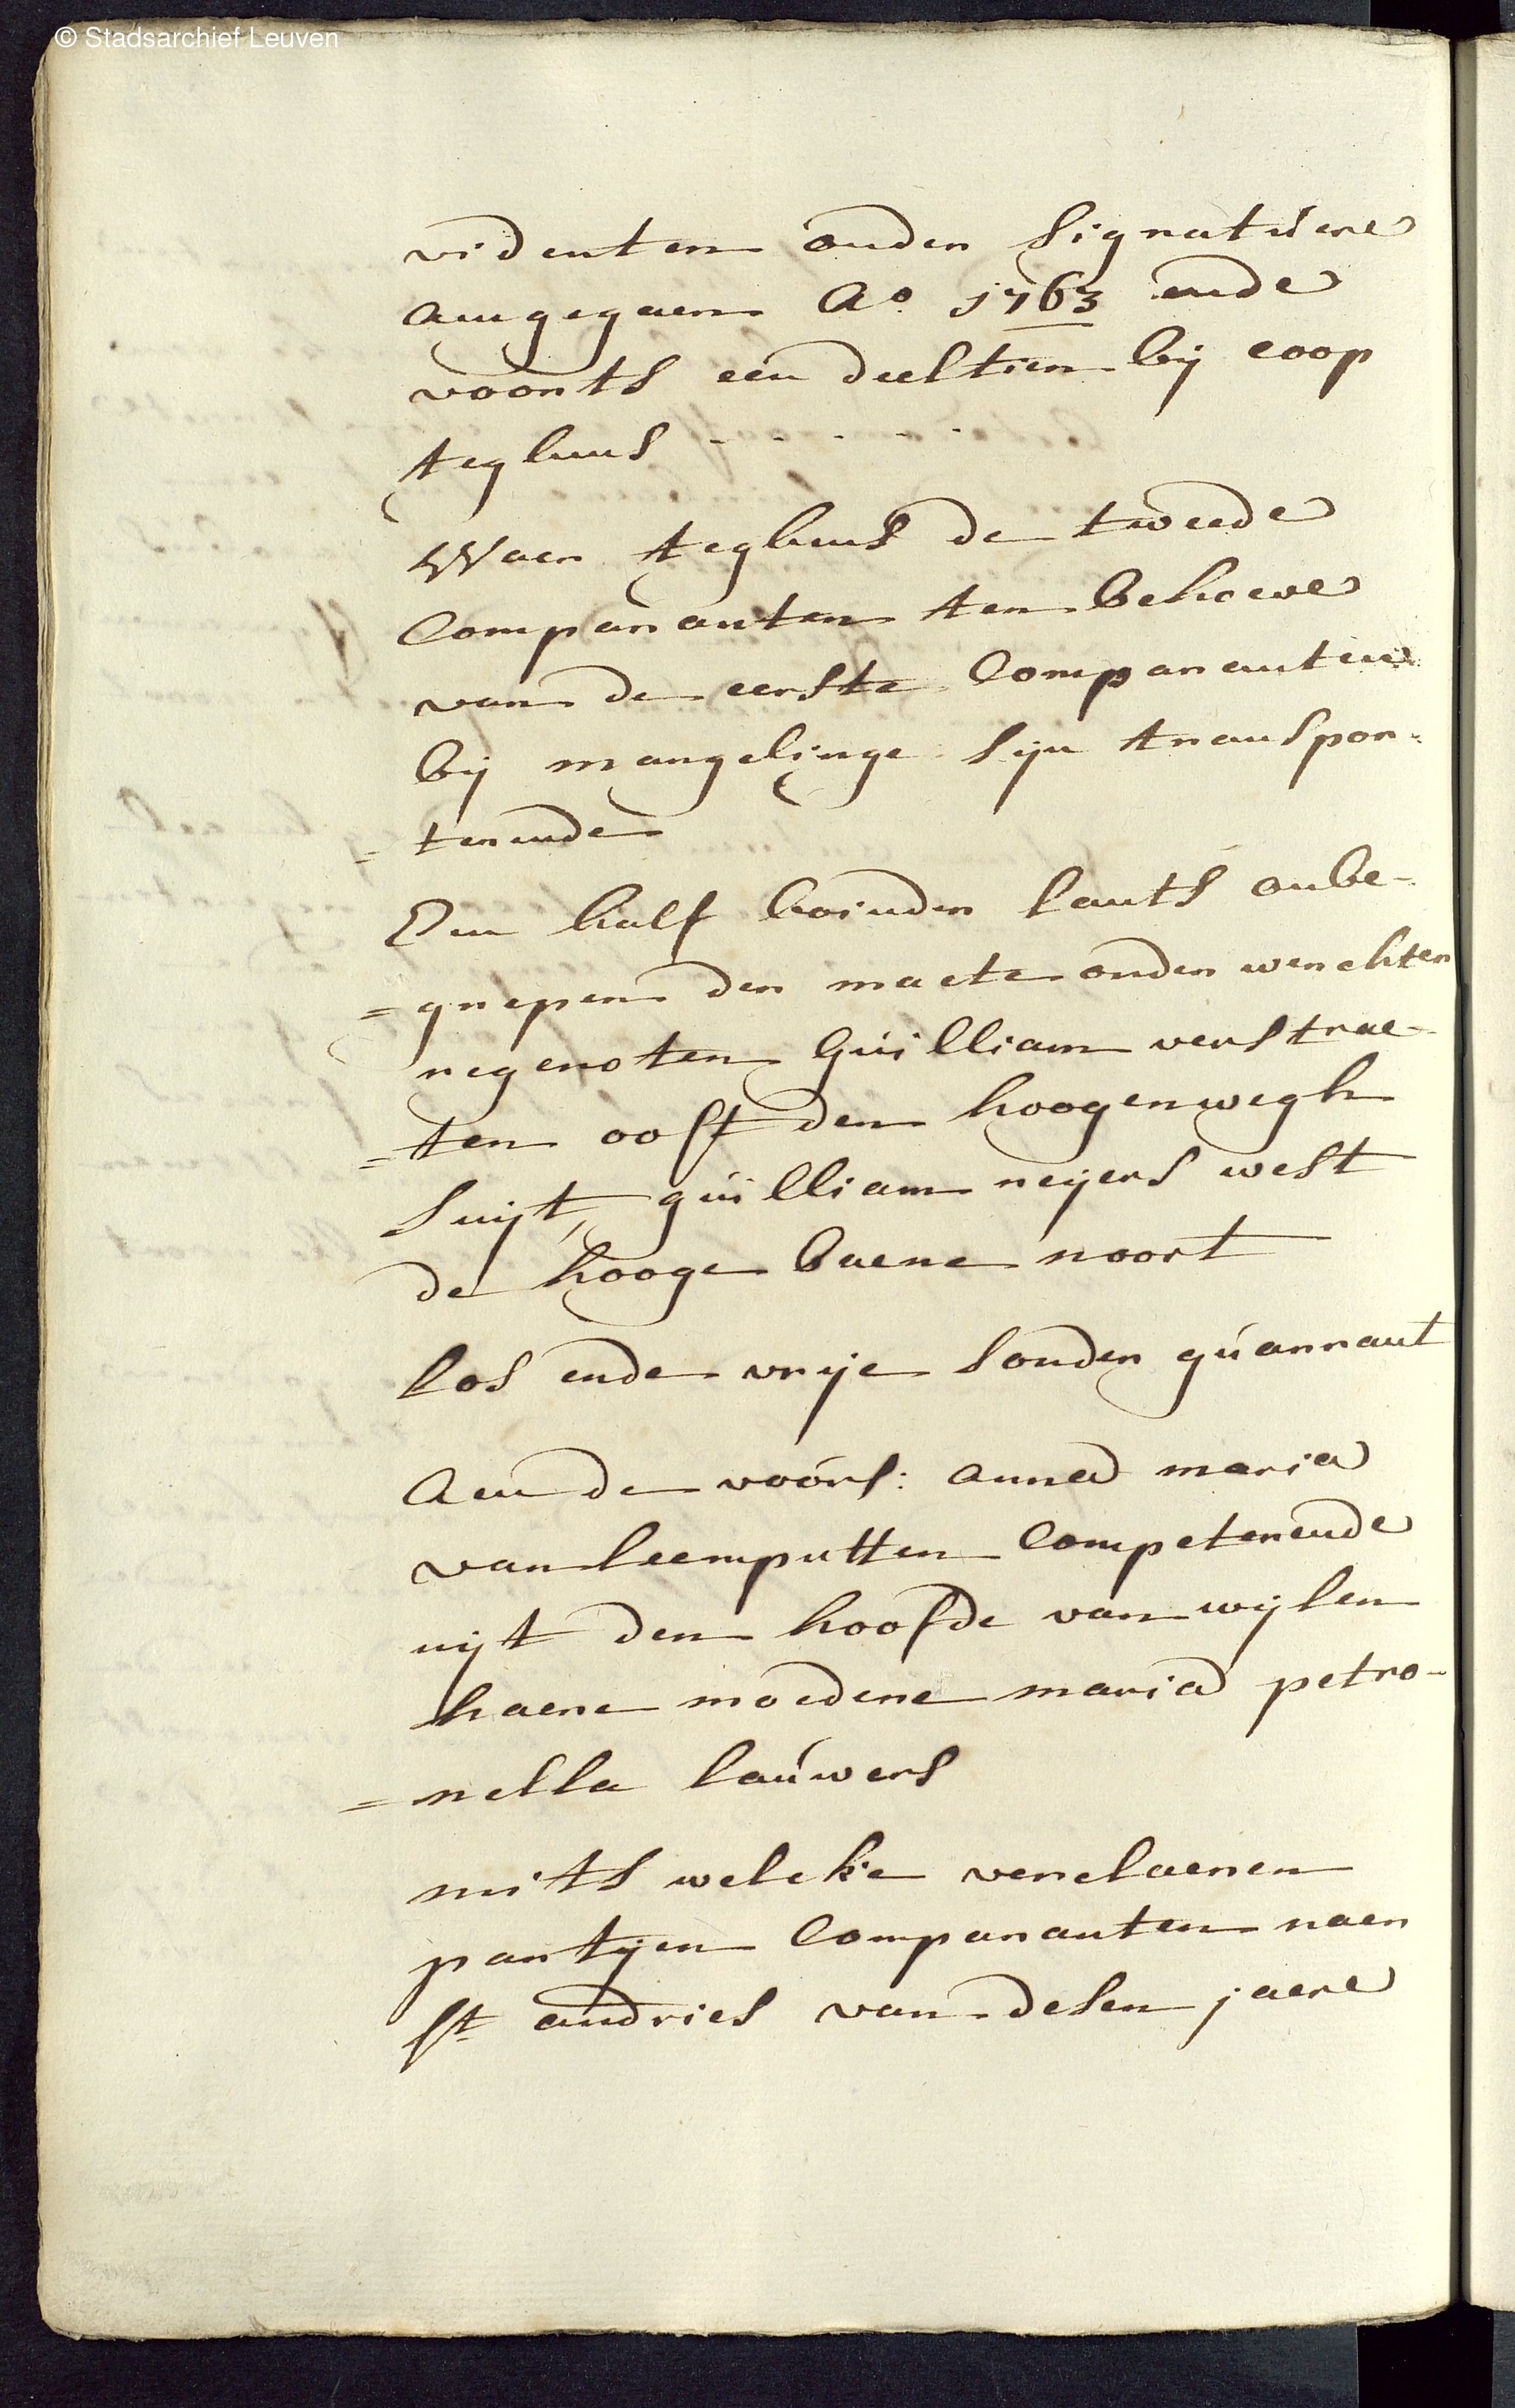 © Stadsarchief Leuven
videnten onder signatúere
aengegaen Ao 1763 ende
voorts een deeltien bij coop
teghens - - - - -
Waer teghens de tweede
Comparanten ten behoeve
van de eerste Comparantine
bij mangelinge sijn transpor-
=terende
Een half boinder lants onbe-
=grepen der maete onder werchter
regenoten Guilliam verstrae-
=ten oost den hoogenwegh
suijt, guilliam reijers west
de hooge baene noort
los ende vrije sonder guarrant
Aen de voors: anna maria
van leemputten Competerende
uijt den hoofde van wijlen
haere moedere maria petro-
=nella lauwers
mits welcke verclaeren
partijen Comparanten naer
st andries van desen jaere